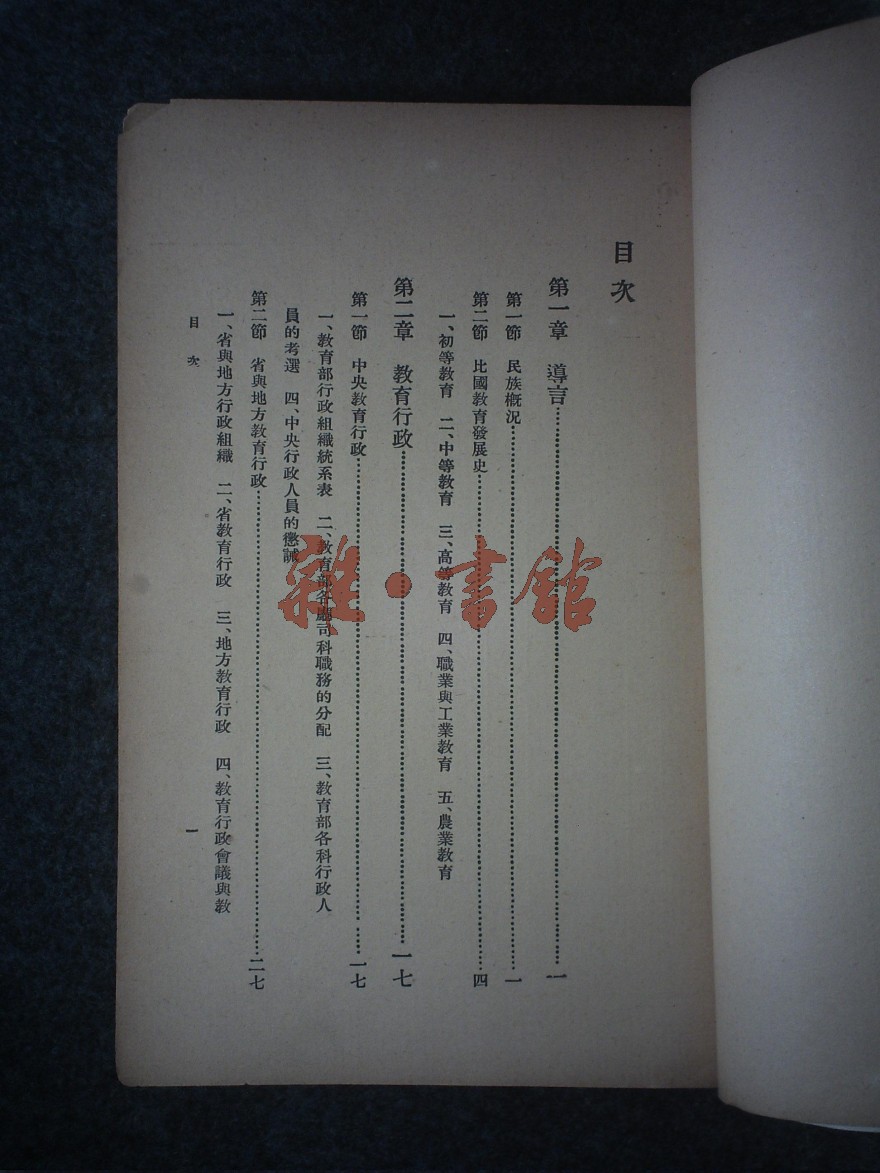 目次
第一章　導言…………一
第一節　民族概況…………一
第二節　比國教育發展史…………四
一、初等教育　二、中等教育　三、高等教育　四、職業與工業教育　五、農業教育
第二章　教育行政…………一七
第一節　中央教育行政…………一七
一、教育部行政組織統系表　二、教育部各廳司科職務的分配　三、教育部各科行政人
員的考選　四、中央行政人員的懲誡
第二節　省與地方教育行政…………二七
一、省與地方行政組織　二、省教育行政　三、地方教育行政　四、教育行政會議與教
目次　一
雜·書館